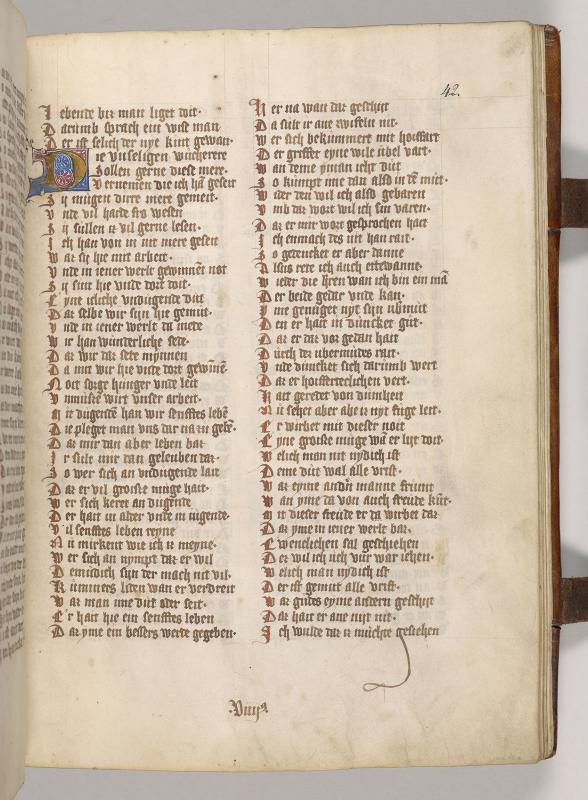 42.
Lebende bit man liget doit.
Darumb sprach ein wise man
Der ist selich der nye kint gewan.
Die vnseligen wucherere
Sollen gerne diese mere.
Vernemen die ich han geseit
Sij mugen dirre mere gemeit.
Vnde vil harde fro wesen
Sij sullen is vil gerne lesen.
Ich han von in nit mere geseit
War sij hie mit arbeit.
Vnde in iener werlt gewinnen not
Sij sint hie vnde dort doit.
Eyne ieliche vndugende dut
Dar selbe wir sijn hie gemut.
Vnde in iener werlt da mede
Wir han wunderliche sede.
Dar wir dar stete mynnen
Da mit wir hie vnde dort gewinnen.
Noit sorge hunger vnde leit
Vnmuse wirt vnser arbeit.
Mit dugenden han wir senfftes leben
Die pleget man vns dar na zu geben.
Dar mir dan aber leben bas
Ir sult mir dan geleuben das.
So wer sich an vndugende lait
Dar er vil groiste muge hait.
Wer sich keret an dugende
Der hait in alder vnde in iugende.
Vil senfftes leben reyne
Nu mirkent wie ich is meyne.
Wer sich an nympt dar er wil
Demudich sijn der mach nit vil.
Kummers liden wan er verdreit
War man ime dut oder seit.
Er hait hie ein senfftes leben
Dar yme ein bessers werde gegeben.
Hier na wan dar geschijt
Da sult ir ane zwifeln nit.
Wer sich bekummert mit hoiffart
Der griffet eyne wile ubel vart.
Wan deme yman icht dut
So kumpt ime dar also in den mut.
Wider den wil ich also gebaren
Vmb dar wort wil ich sin varen.
Dar er mir wort gesprochen hait
Ich enmach des nit han rait.
So gedencket er aber danne
Alsus rete ich auch ettewanne.
Wieder die heren wan ich bin ein man
Der beide gedar vnde kan.
Yme genuget nyt sijn ubmut
Den er hait in duncket gut.
Dar er dar vor gedan hait
Durch der ubermudes rait.
Vnde duncket sich darumb wert
Dar er hoifferteclichen vert.
Hait geredet von dumheit
Nu sehet aber ahe is nyt fuge leit.
Er wirbet mit dieser noit
Eyne groiste muge wan er lijt doit.
Welich man nit nydich ist
Deme dut wal alle vrist.
War eyme andern manne frumt
Wan yme da von auch freude kumt.
Mit dieser freude er da wirbet dar
Dar yme in iener werlt bas.
Ewenclichen sal geschiehen
Der wil ich uch vur war iehen.
Welich man nydich ist
Der ist gemut alle vrist.
War gudes eyme andern geschijt
Dar hait er ane nijt nit.
Ich wulde dar is muchte geschen
.Viiij.